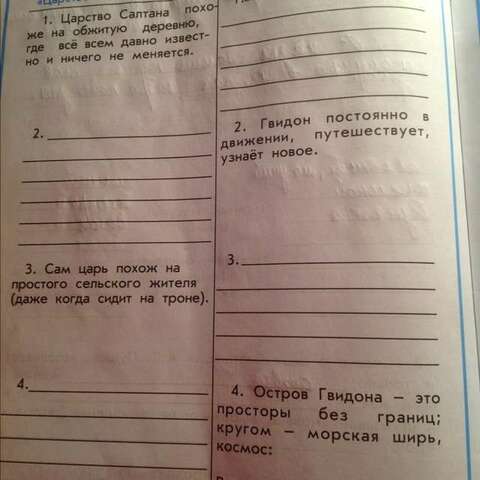 1. Царство Салтана похо-
же на обжитую деревню,
где всё всем давно извест-
но и ничего не меняется.
2.
3. Сам царь похож на
простого сельского жителя
(даже когда сидит на троне).
4.
2. Гвидон постоянно в
движении, путешествует,
узнаёт новое.
3.
4. Остров Гвидона – это
просторы без границ;
кругом – морская ширь,
космос: